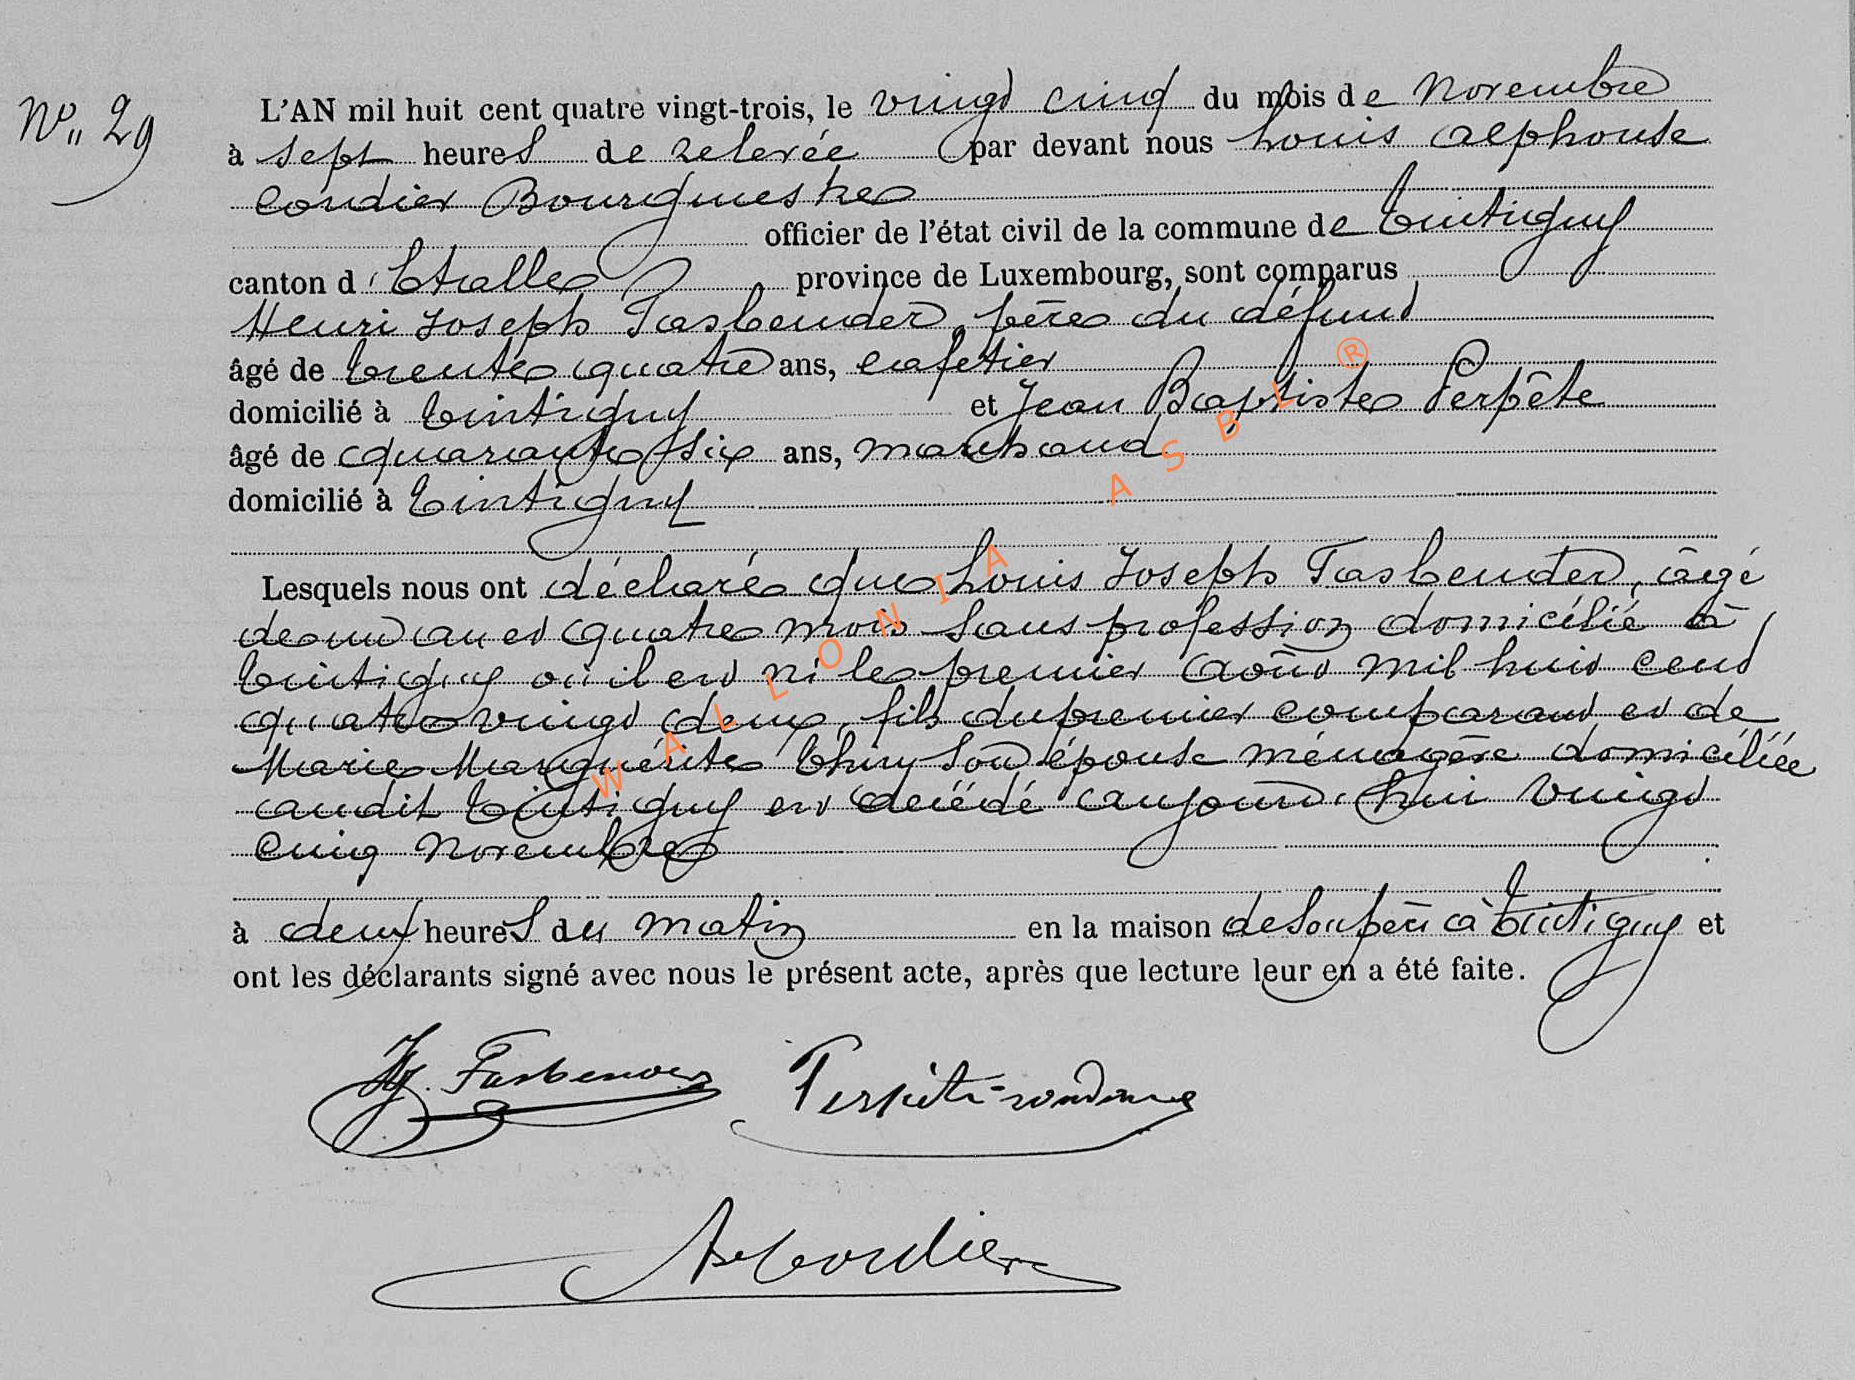 N° 29
L'AN mil huit cent quatre vingt-trois, le vingt cinq du mois de Novembre
à sept heures de relevée par devant nous Louis Alphonse
Cordier Bourgmestre
officier de l'état civil de la commune de Tintigny
canton d'Etalle province de Luxembourg, sont comparus
Henri Joseph Fasbender, père du défunt
âgé de trente quatre ans, cafetier
domicilié à Tintigny et Jean Baptiste Perpête
âgé de quarante six ans, marchand
domicilié à Tintigny
Lesquels nous ont déclaré que Louis Joseph Fasbender, âgé
de un an et quatre mois sans profession domicilié à
Tintigny où il est né le premier août mil huit cent
quatre vingt deux, fils du premier comparant et de
Marie Marguérite Thiry son épouse ménagère domiciliée
audit Tintigny est décédé aujourd'hui vingt
cinq novembre
à deux heures du matin en la maison de son père à Tintigny et
ont les déclarants signé avec nous le présent acte, après que lecture leur en a été faite.
HJ. Fasbender Perpête-
A Cordier
WALLONIA ASBL ®